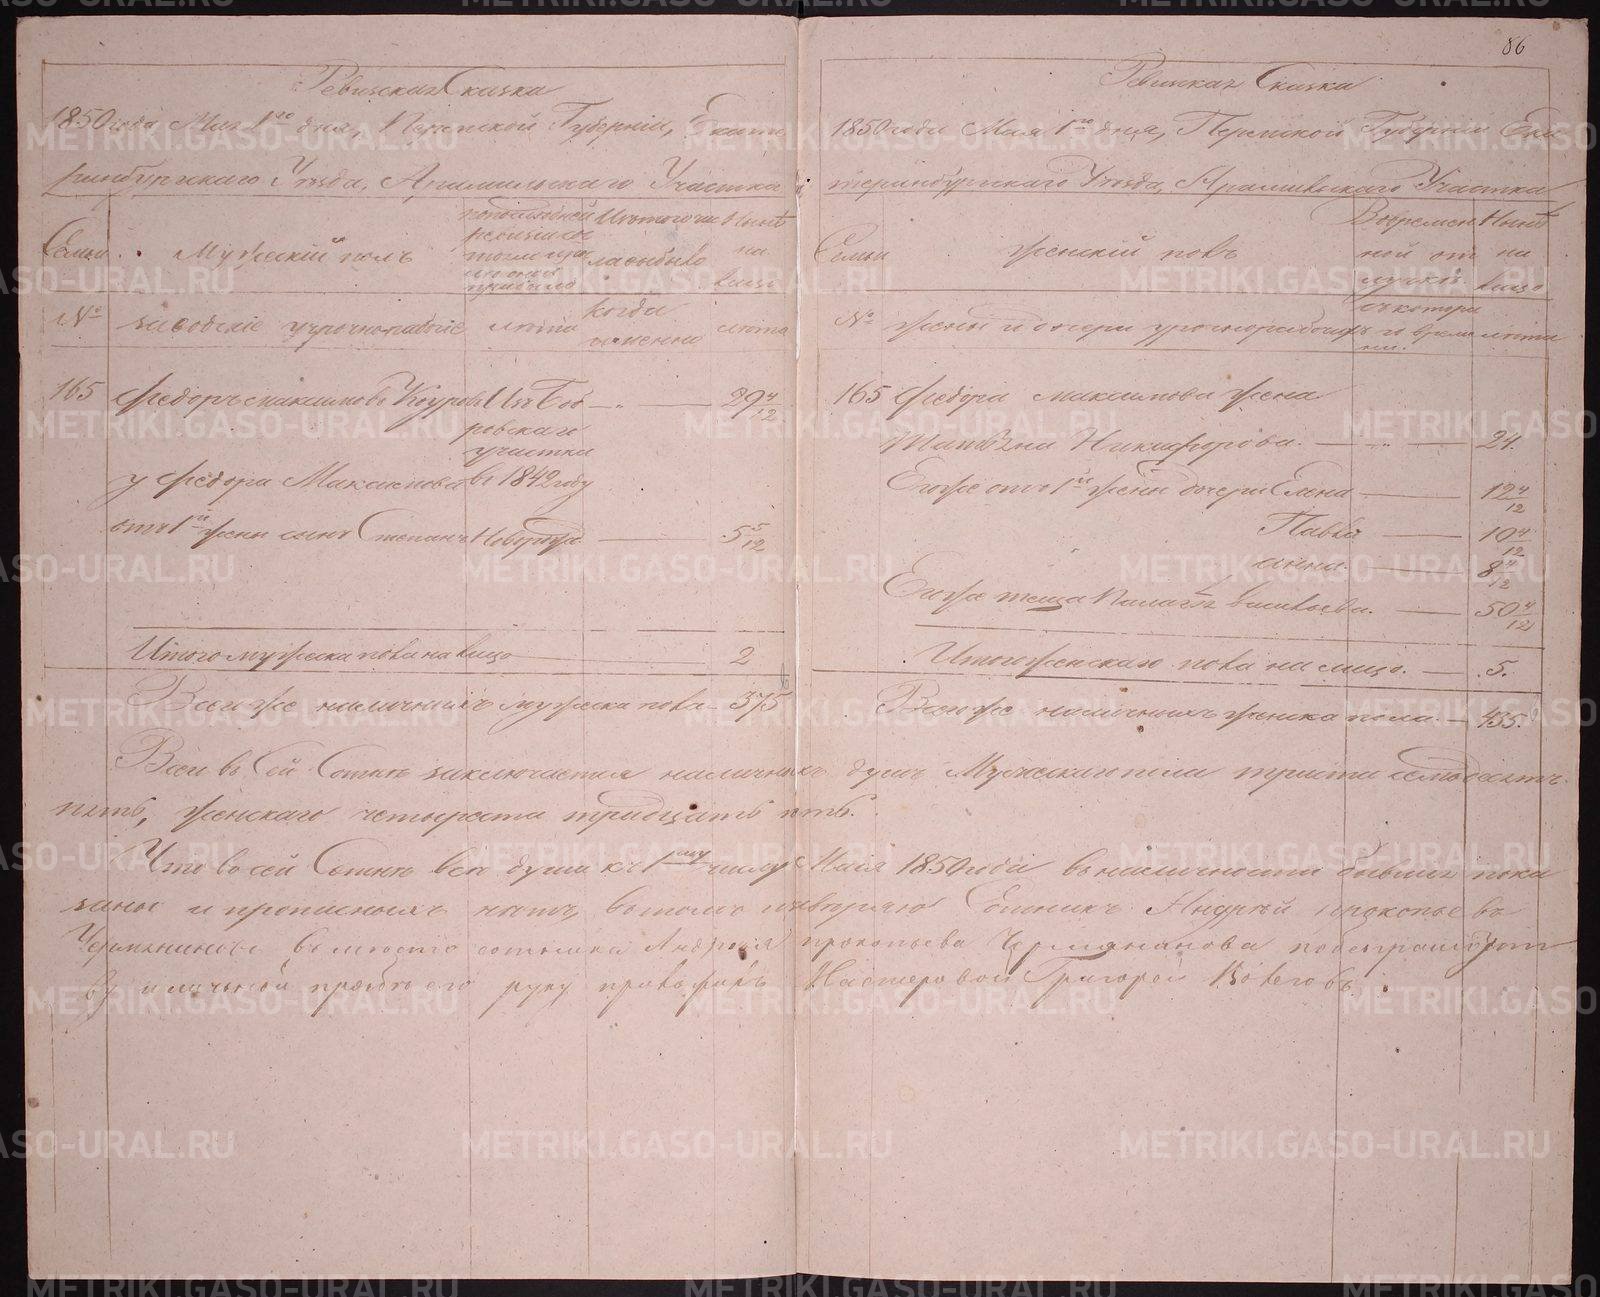 86
Ревизская Сказка
1850 года Мая 1го дня, Пермской Губерніи, Екате
ринбургскаго Уѣзда, Арамильскаго Участка
Семьи
Мужескій полъ
по последней ревизіи
Изъ того числа выбыло
Нынѣ на лицо
№
заводскіе урочноработ
лѣта
когда именно
лѣта
165 Федоръ Максимовъ Изъ Боровскаго участка — „ — 29 4/12
у Федора Максимова въ 1842 году
отъ 1й жены сынъ Степанъ — 5 5/12
Итого мужеска пола на лицо 2
Всего же наличныхъ мужеска пола — 375
Ревизская Сказка
1850 года Мая 1го дня, Пермской Губерніи Ека
теринбургскаго Уѣзда, Арамильскаго Участка
Семьи
Женскій полъ
Во временной отлучкѣ
Нынѣ на лицо
№
жены и дочери урочноработ
съ котораго времени
лѣта
165 Федора Максимова жена
Татьяна Никифорова. — „ — 24.
Его же отъ 1й жены дочери Елена — 12 4/12
Павла — 10 4/12
Анна. — 8 4/12
Его же теща Васильева. — 50 4/12
Итого женскаго пола на лицо. — 5.
Всего же наличныхъ женска пола. — 435.
Всего въ сей Сотнѣ заключается наличныхъ душъ Мужескаго пола триста семдесятъ
пять, женскаго четыреста тридцать пять.
Что въ сей Сотнѣ всѣ души къ 1му числу Мая 1850 года въ наличности бывшіе пока
заны и прописныхъ нѣтъ, въ томъ Сотникъ Андрей Прокопьевъ
вместо сотника Андрея Прокопьева Чермянинова по безграмотст
ву и личной прозбѣ его руку приложилъ Мастеровой Григорей